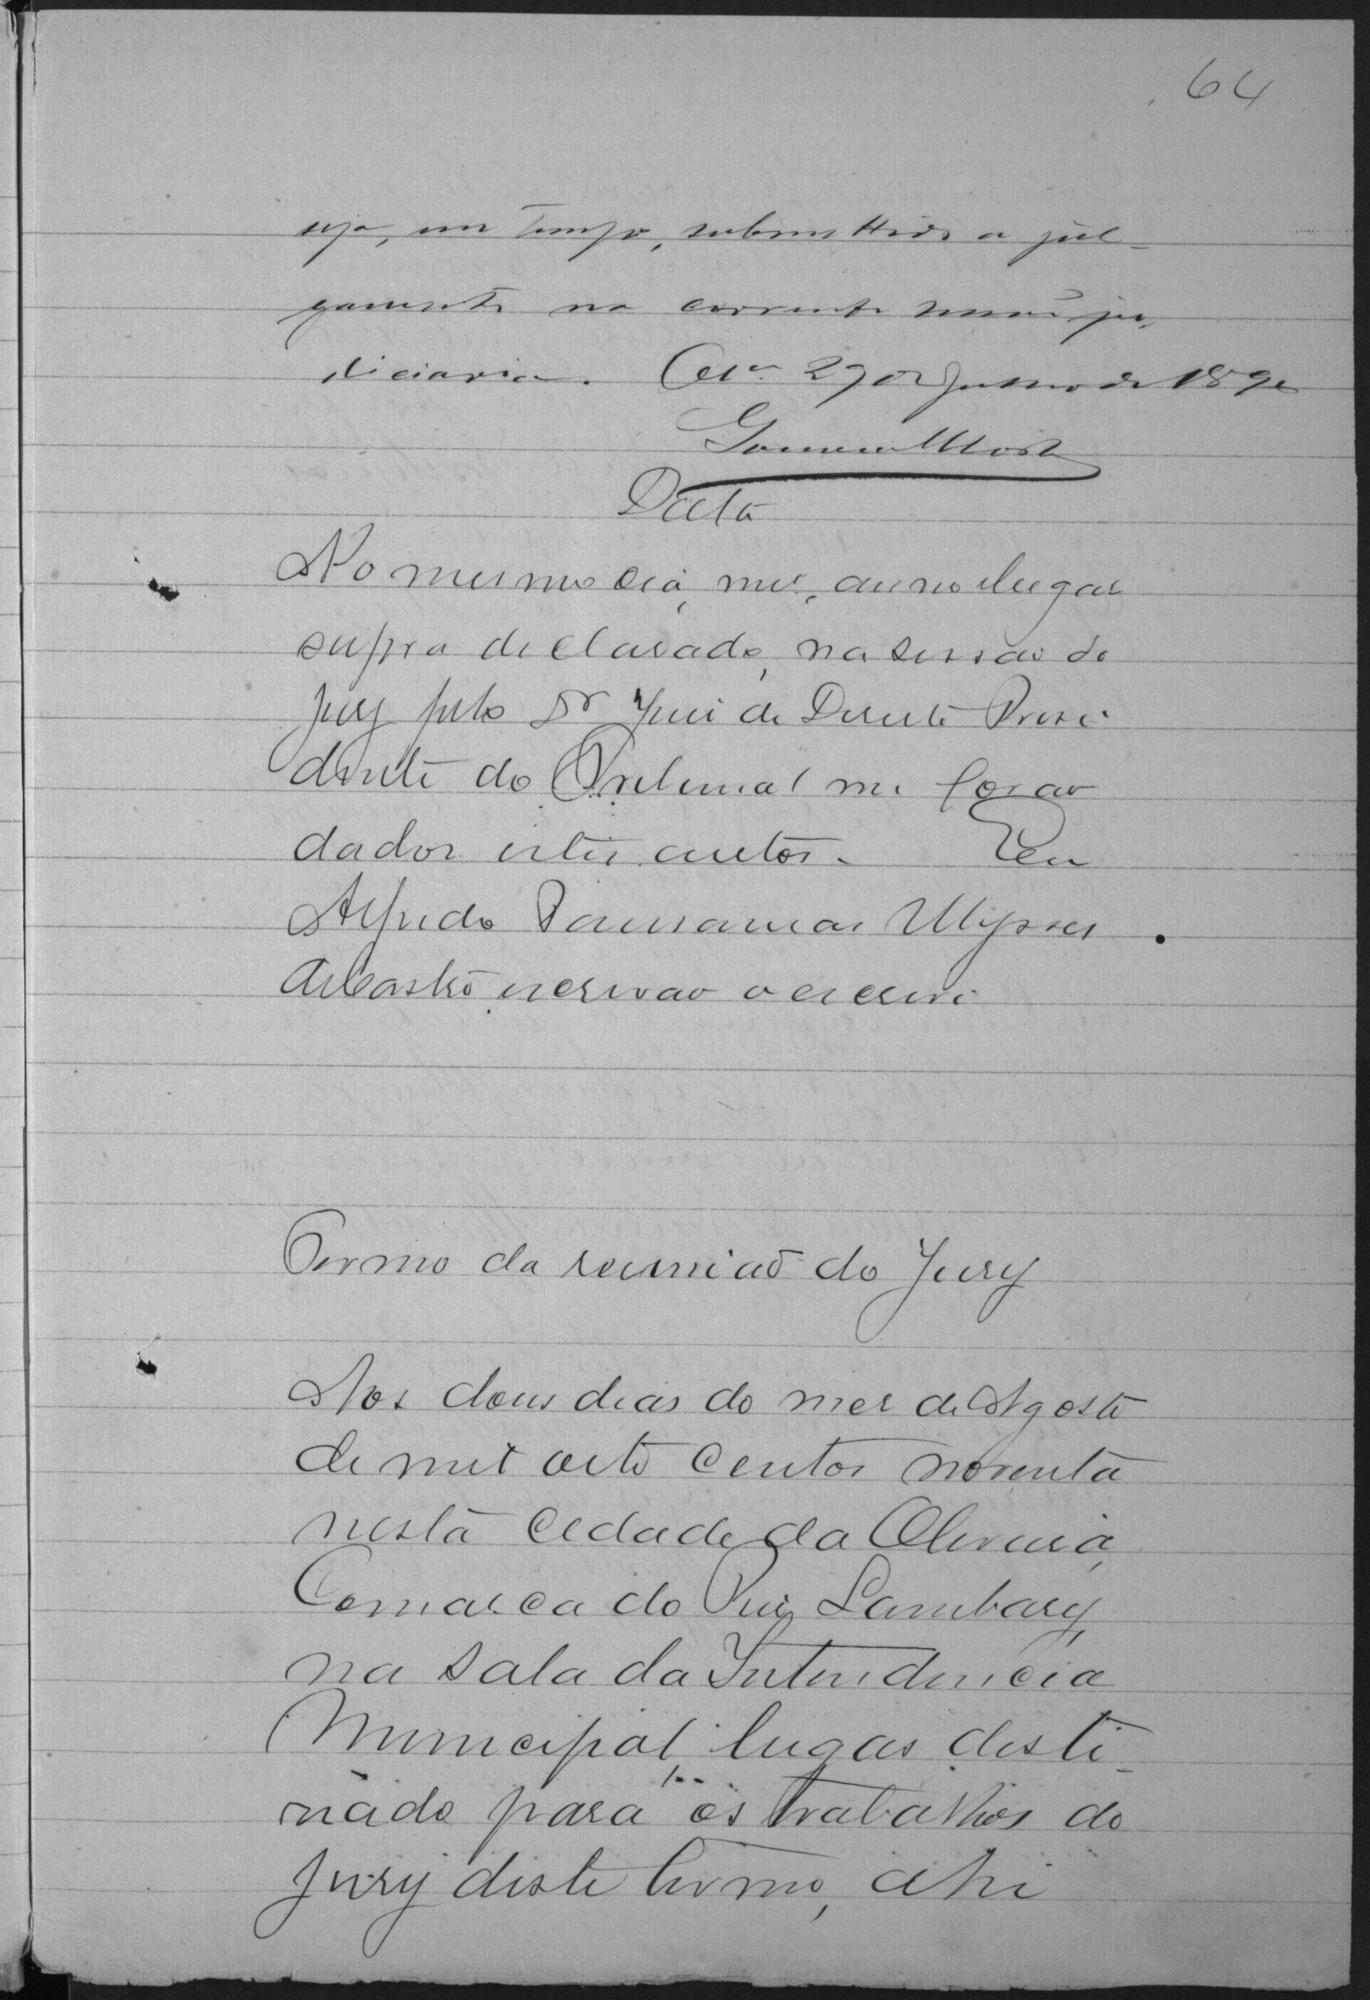 64
seja, em tempo, submettido a jul-
gamento na corrente sessão ju-
diciaria. 29 de Julho de 1890
Data
No mesmo dia, mes, anno e lugar
supra declarado, na sessão do
Jury pelo Dr Juiz de Direito Presi
dente do Tribunal me forão
dados estes autos. Eu
Alfredo Pausanias Ulysses
de Castro escrivão o escrevi
Termo da reunião do Jury
Aos dous dias do mes de Agosto
de mil oito centos noventa
nesta cidade da Oliveira,
Comarca do Rio Lambary,
na sala da Intendencia
Municipal, lugar desti-
nado para os trabalhos do
Jury deste termo, ahi